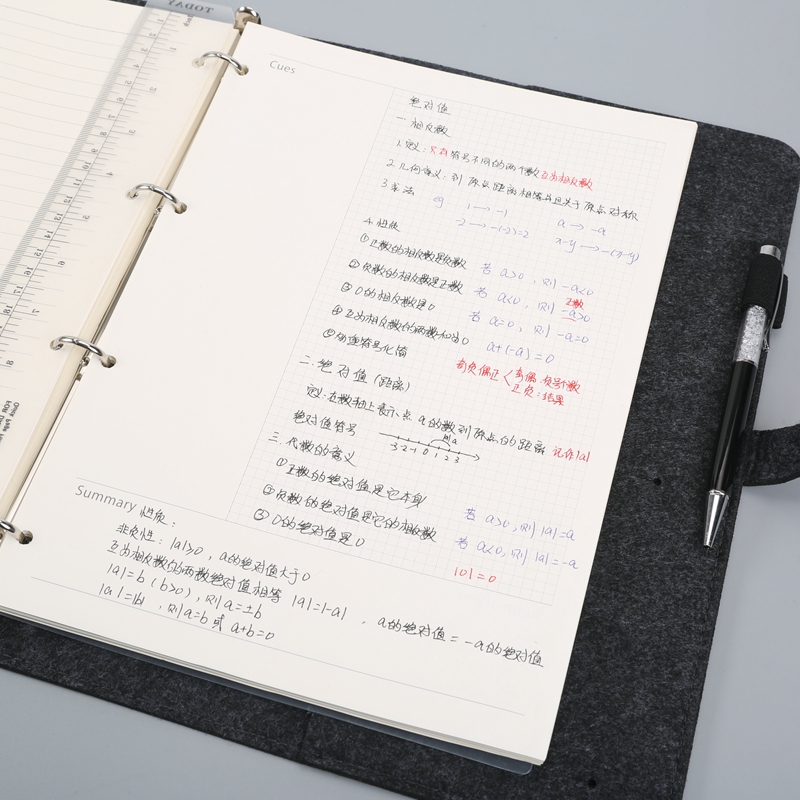 TODAY
Cues
绝对值
一. 相反数
1. 定义：只有符号不同的两个数互为相反数
2. 几何意义：到原点距离相等并且关于原点对称
3. 求法 eg 1→-1 a→-a
-2→-(-2)=2 x-y→-(x-y)
4. 性质
①正数的相反数是负数 若 a>0，则-a<0
②负数的相反数是正数 若 a<0，则-a>0 正数
③0的相反数是0 若 a=0，则-a=0
④互为相反数的两数和为0 a+(-a)=0
⑤多重符号化简 奇负偶正 奇偶：负号个数
正负：结果
二. 绝对值（距离）
定义：在数轴上表示点a的数到原点的距离 记作|a|
绝对值符号 |a|
-3 -2 -1 0 1 2 3
三. 代数的意义
①正数的绝对值是它本身 若 a>0，则|a|=a
②负数的绝对值是它的相反数 若 a<0，则|a|=-a
③0的绝对值是0 |0|=0
Summary 性质：
非负性：|a|≥0，a的绝对值大于0
互为相反数的两数绝对值相等 |a|=|-a|，a的绝对值=-a的绝对值
|a|=b（b>0），则a=±b
|a|=|b|，则a=b或a+b=0